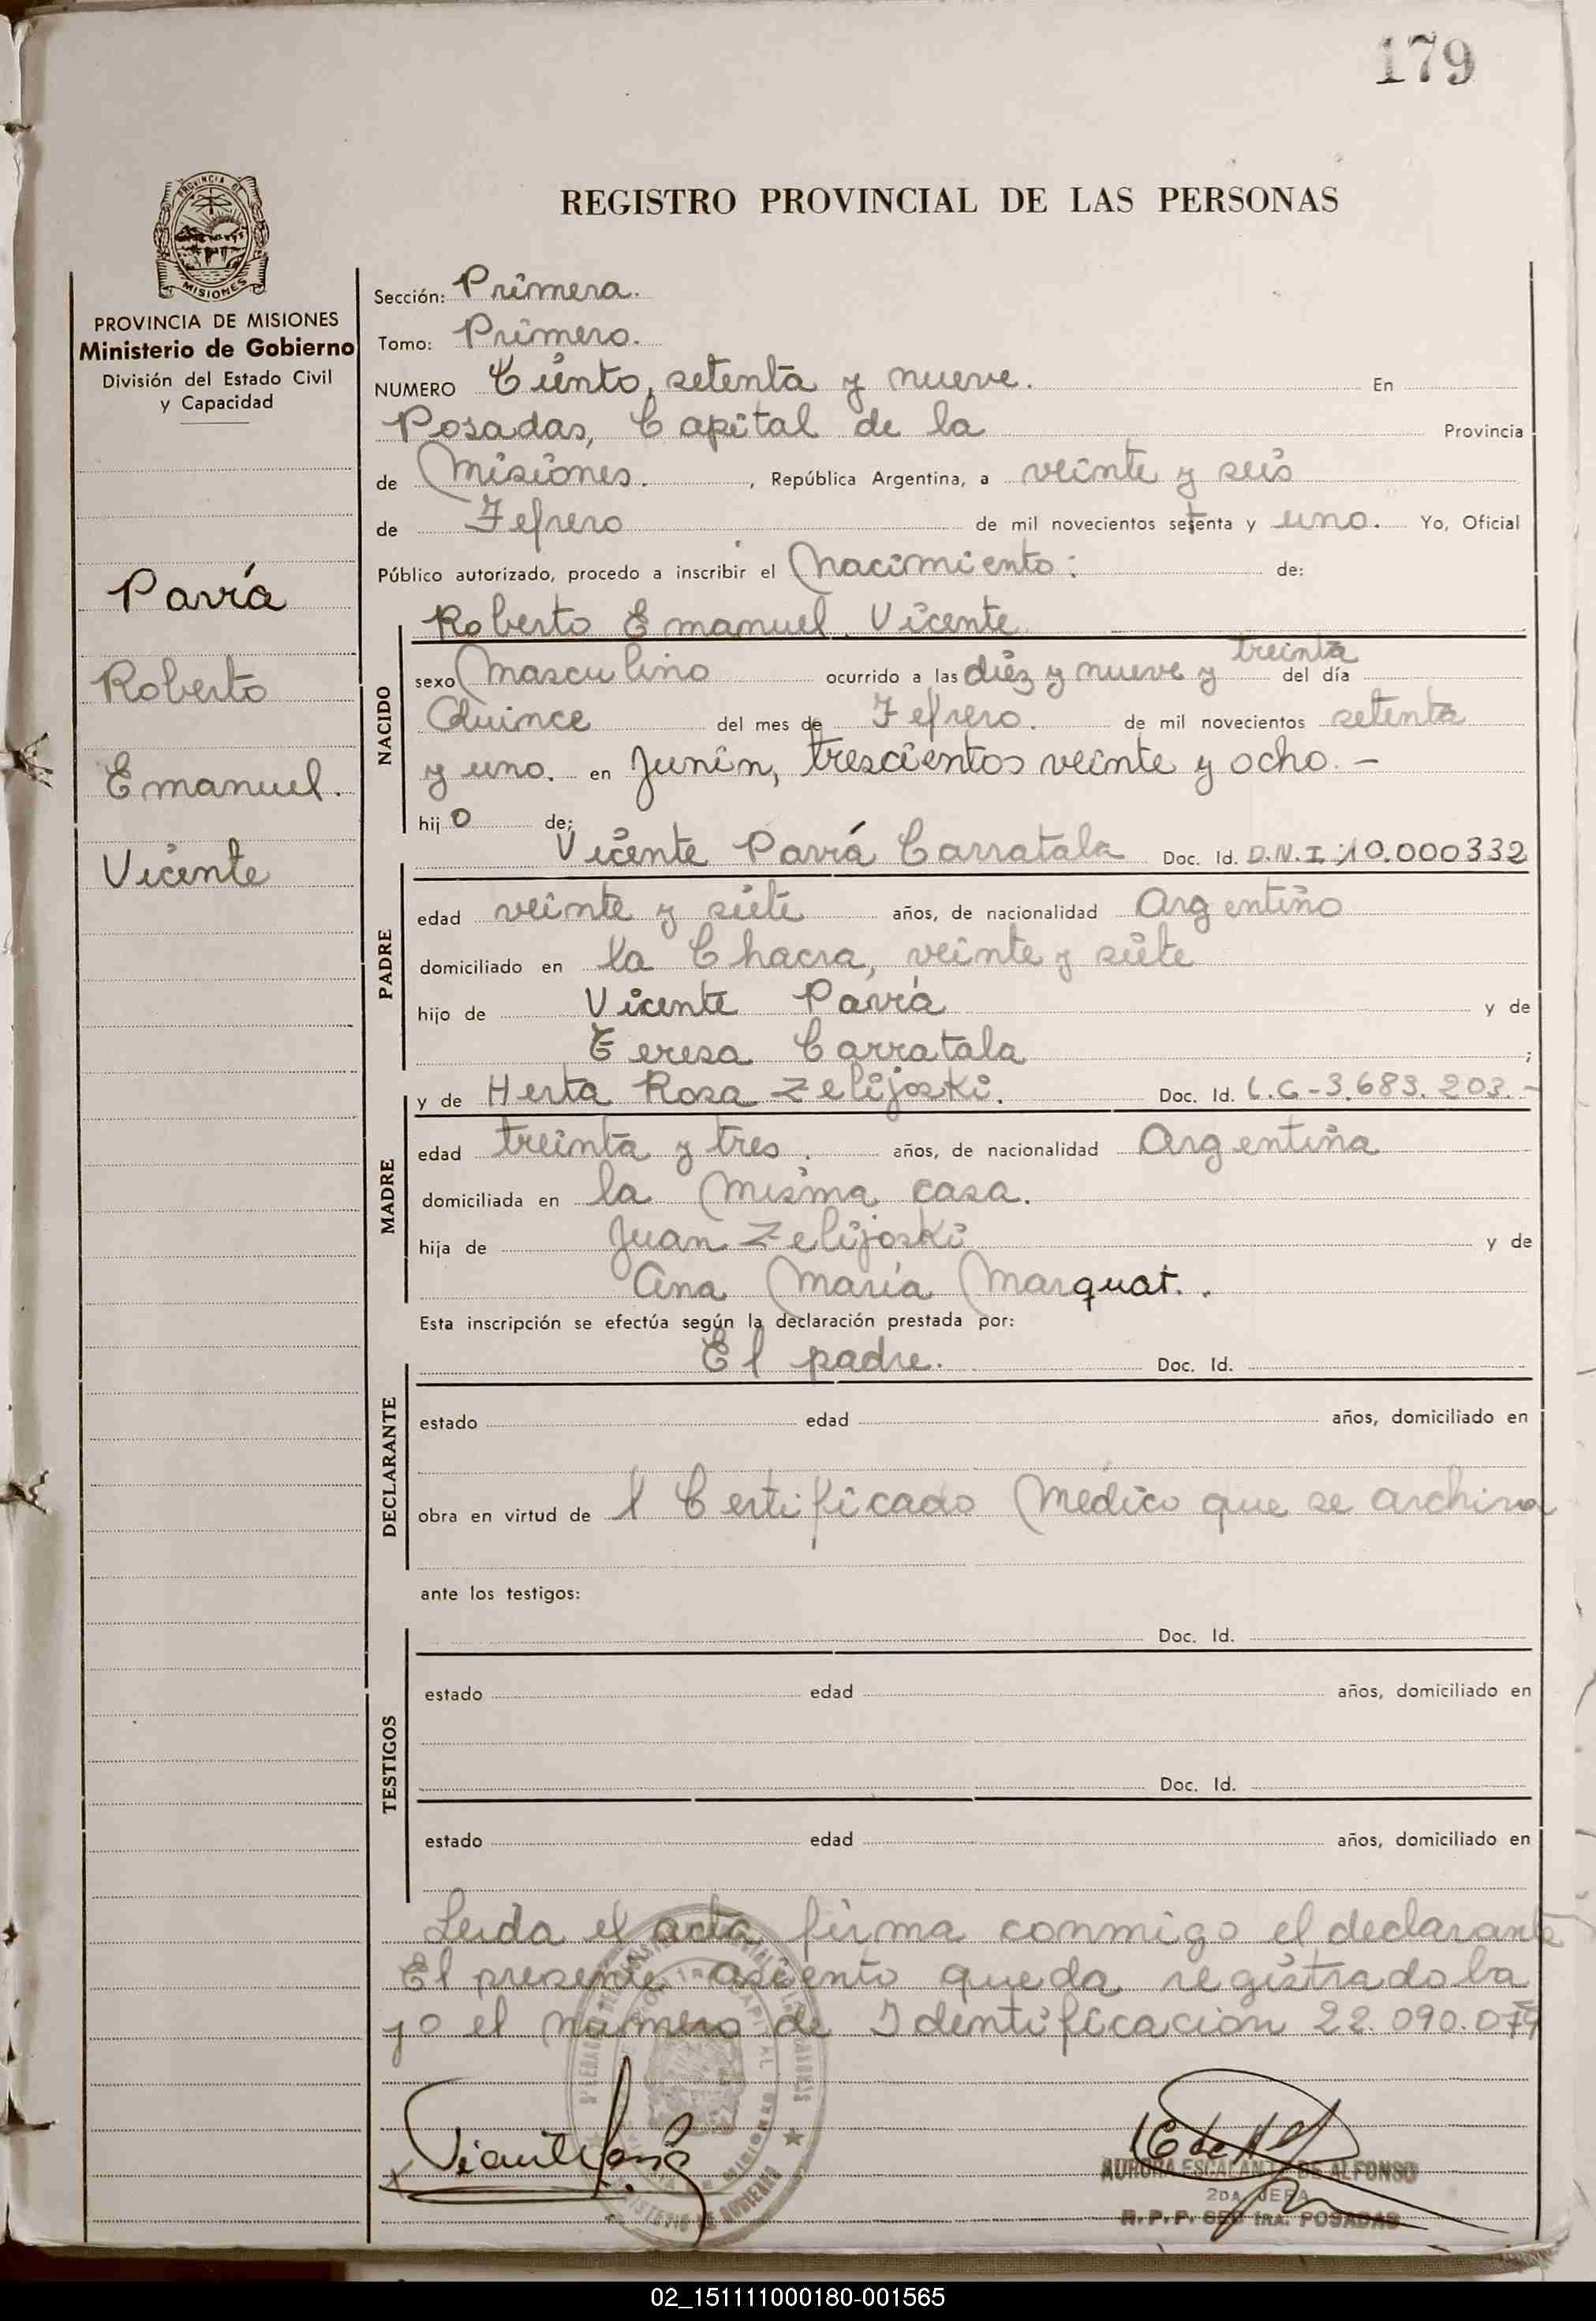 179
REGISTRO PROVINCIAL DE LAS PERSONAS
PROVINCIA DE
MISIONES
PROVINCIA DE MISIONES
Ministerio de Gobierno
División del Estado Civil
y Capacidad
Pavía
Roberto
Emanuel.
Vicente
Sección: Primera.
Tomo: Primero.
NUMERO Ciento, setenta y nueve. En
Posadas, Capital de la Provincia
de Misiones. , República Argentina, a veinte y seis
de Febrero de mil novecientos setenta y uno. Yo, Oficial
Público autorizado, procedo a inscribir el Nacimiento: de:
Roberto Emanuel Vicente
NACIDO
treinta
sexo Masculino ocurrido a las diez y nueve y del día
Quince del mes de Febrero. de mil novecientos setenta
y uno. en Junín, trescientos veinte y ocho. —
hij o de;
Vicente Pavía Carratala Doc. Id. D.N.I. 10.000332
PADRE
edad veinte y siete años, de nacionalidad Argentino
domiciliado en la Chacra, veinte y siete
hijo de Vicente Pavía y de
Teresa Carratala ;
y de Herta Rosa Zelijoski. Doc. Id. L.C-3.683.203.-
MADRE
edad treinta y tres. años, de nacionalidad Argentina
domiciliada en la misma casa.
hija de Juan Zelijoski y de
Ana María Marquat. .
Esta inscripción se efectúa según la declaración prestada por:
El padre. Doc. Id.
DECLARANTE
estado edad años, domiciliado en
obra en virtud de l Certificado Médico que se archiva
ante los testigos:
Doc. Id.
TESTIGOS
estado edad años, domiciliado en
Doc. Id.
estado edad años, domiciliado en
Leída el acta, firma conmigo el declarante
El presente asiento queda registrado ba
jo el número de Identificación 22.090.079
AURORA ESCALANTE DE ALFONSO
2DA JEFA
R.P.P. SEC 1RA. POSADAS
02_151111000180-001565